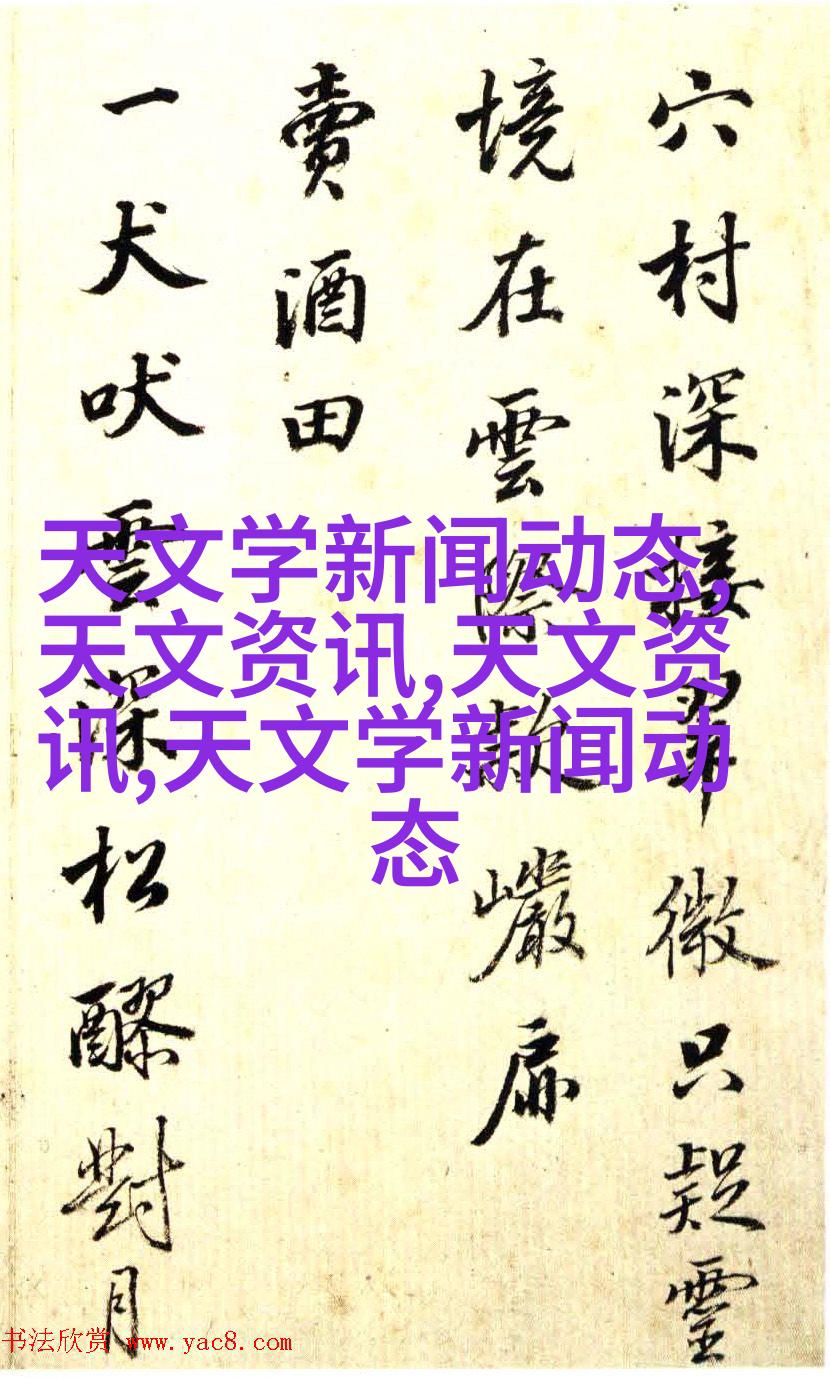 穴村深接翠微只疑靈
境在雲際敲巖扉
賣酒田
一犬吠雲深松醪對月
天文学新闻动态,
天文资讯,天文资
讯,天文学新闻动
态
书法欣赏 www.yac8.com